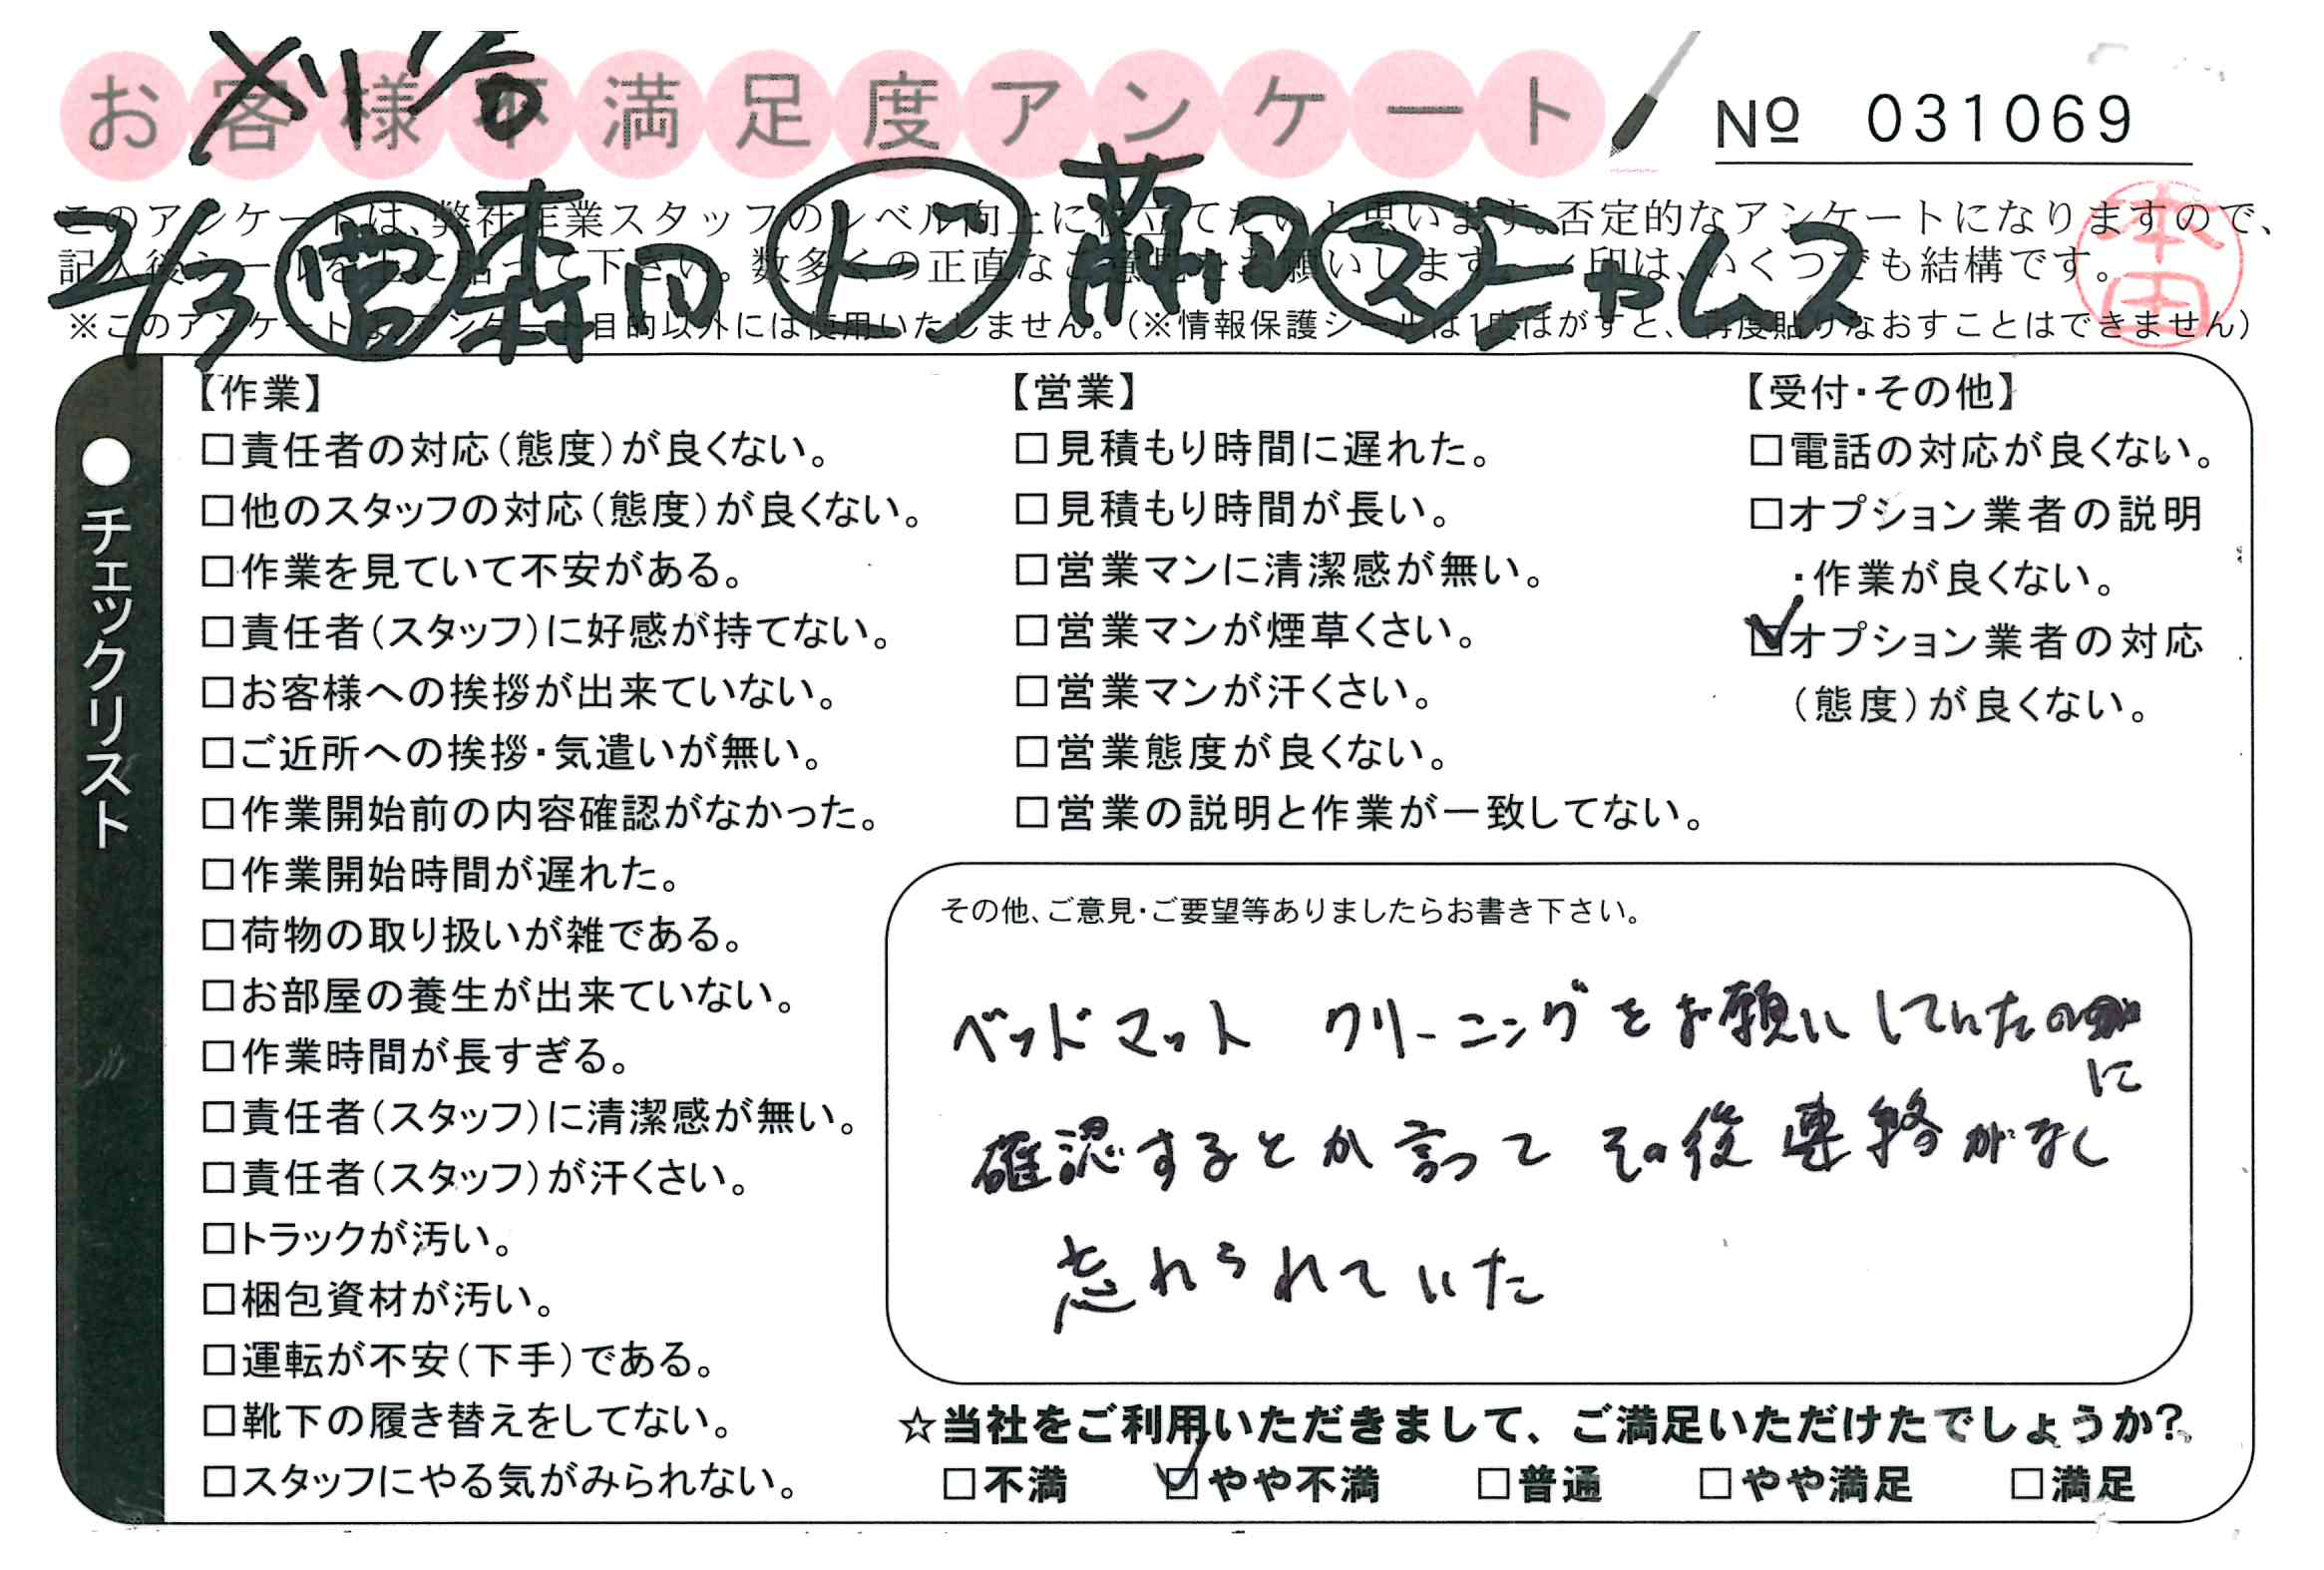 お客様不満足度アンケート
№ 031069
刈谷
2/3 営 森田 ド 薪田 ス ニャムス
本田
このアンケートは、弊社作業スタッフのレベル向上に役立てたいと思います。否定的なアンケートになりますので、
記入後シールを上に貼って下さい。数多くの正直なご意見をお願いします。✓印は、いくつでも結構です。
※このアンケートは、アンケート目的以外には使用いたしません。(※情報保護シールは1度はがすと、再度貼りなおすことはできません)
●チェックリスト
【作業】
□責任者の対応(態度)が良くない。
□他のスタッフの対応(態度)が良くない。
□作業を見ていて不安がある。
□責任者(スタッフ)に好感が持てない。
□お客様への挨拶が出来ていない。
□ご近所への挨拶・気遣いが無い。
□作業開始前の内容確認がなかった。
□作業開始時間が遅れた。
□荷物の取り扱いが雑である。
□お部屋の養生が出来ていない。
□作業時間が長すぎる。
□責任者(スタッフ)に清潔感が無い。
□責任者(スタッフ)が汗くさい。
□トラックが汚い。
□梱包資材が汚い。
□運転が不安(下手)である。
□靴下の履き替えをしてない。
□スタッフにやる気がみられない。
【営業】
□見積もり時間に遅れた。
□見積もり時間が長い。
□営業マンに清潔感が無い。
□営業マンが煙草くさい。
□営業マンが汗くさい。
□営業態度が良くない。
□営業の説明と作業が一致してない。
【受付・その他】
□電話の対応が良くない。
□オプション業者の説明
・作業が良くない。
☑オプション業者の対応
(態度)が良くない。
その他、ご意見・ご要望等ありましたらお書き下さい。
ベッドマット クリーニングをお願いしていたの
に
確認するとか言って その後連絡がなく
忘れられていた
☆当社をご利用いただきまして、ご満足いただけたでしょうか?
□不満 ☑やや不満 □普通 □やや満足 □満足